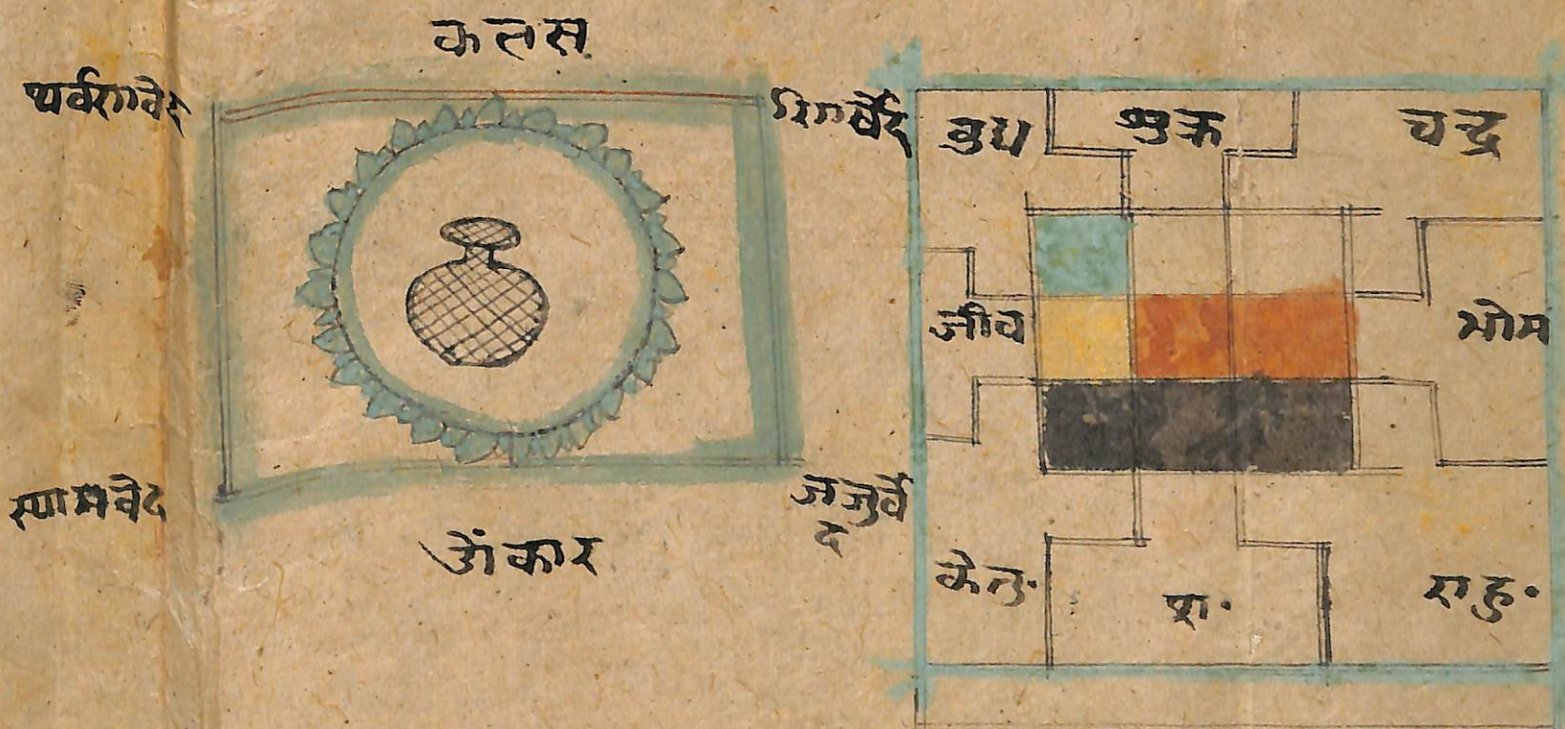 कलस
थर्वरावेद
रिगर्वेद
स्यामवेद
जजुर्वे
द
ओंकार
बुध
शुक्र
चन्द्र
जीव
भोम
केतु·
श·
राहु·